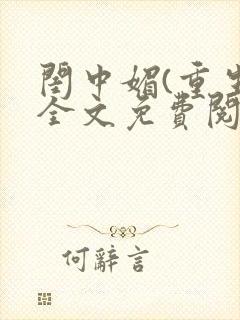 閨中媚(重生
全文免費閱
何辭言